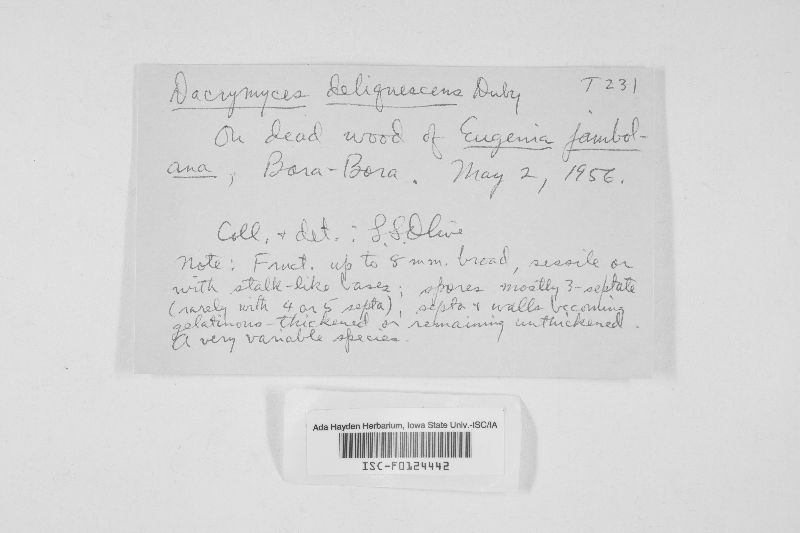 Dacrymyces deliquescens Duby T 231
On dead wood of Eugenia jambol-
ana, Bora-Bora. May 2, 1956.
Coll. & det.: L.S. Olive
Note: Fruct. up to 8 mm. broad, sessile or
with stalk-like bases; spores mostly 3-septate
(rarely with 4 or 5 septa), septa & walls becoming
gelatinous-thickened or remaining unthickened.
A very variable species.
Ada Hayden Herbarium, Iowa State Univ.-ISC/IA
ISC-F0124442